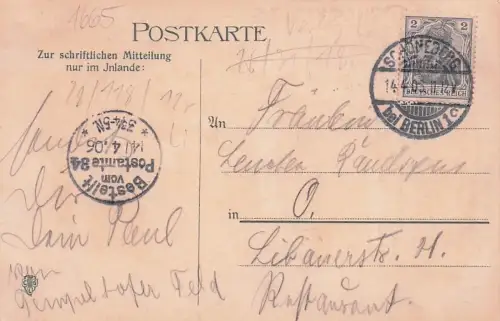 1665
POSTKARTE
Zur schriftlichen Mitteilung
nur im Jnlande:
2
2
DEUTSCHES REICH
SCHÖNEBERG
bei BERLIN 1 c
14.4.0
Bestellt
vom
Postamte 34
14/4.06
3¾-5N.
sendet
Dir
Dein Paul
vom
Tempelhofer Feld
An
Fräulein
in
O.
Libauerstr. 11.
Restaurant.